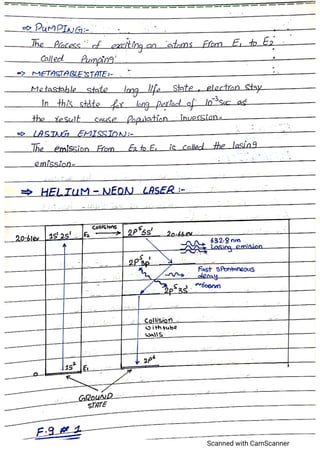 ⇒ PUMPING:-
The Process of exciting an atoms From E₁ to E₂
Called Pumping'
⇒ METASTABLE STATE:-
Metastable state long life State, electron Stay
In this state for long period of 10⁻³Sec as
the result cause Population inversion.
⇒ LASING EMISSION:-
The emission From E₂ to E₁ is called the lasing
emission.
⇒ HELIUM - NEON LASER :-
Collisions
20.61ev 1S¹ 2S¹ E₂ 2P⁵5S¹ 20.66ev
632.8 nm
Lasing emission
2P⁵3P¹
Fast Spontaneous
decay
2P⁵3S¹ ~600nm
Collision
With tube
walls
0 1S² E₁ 2P⁶
GROUND
STATE
F.g # 1
Scanned with CamScanner